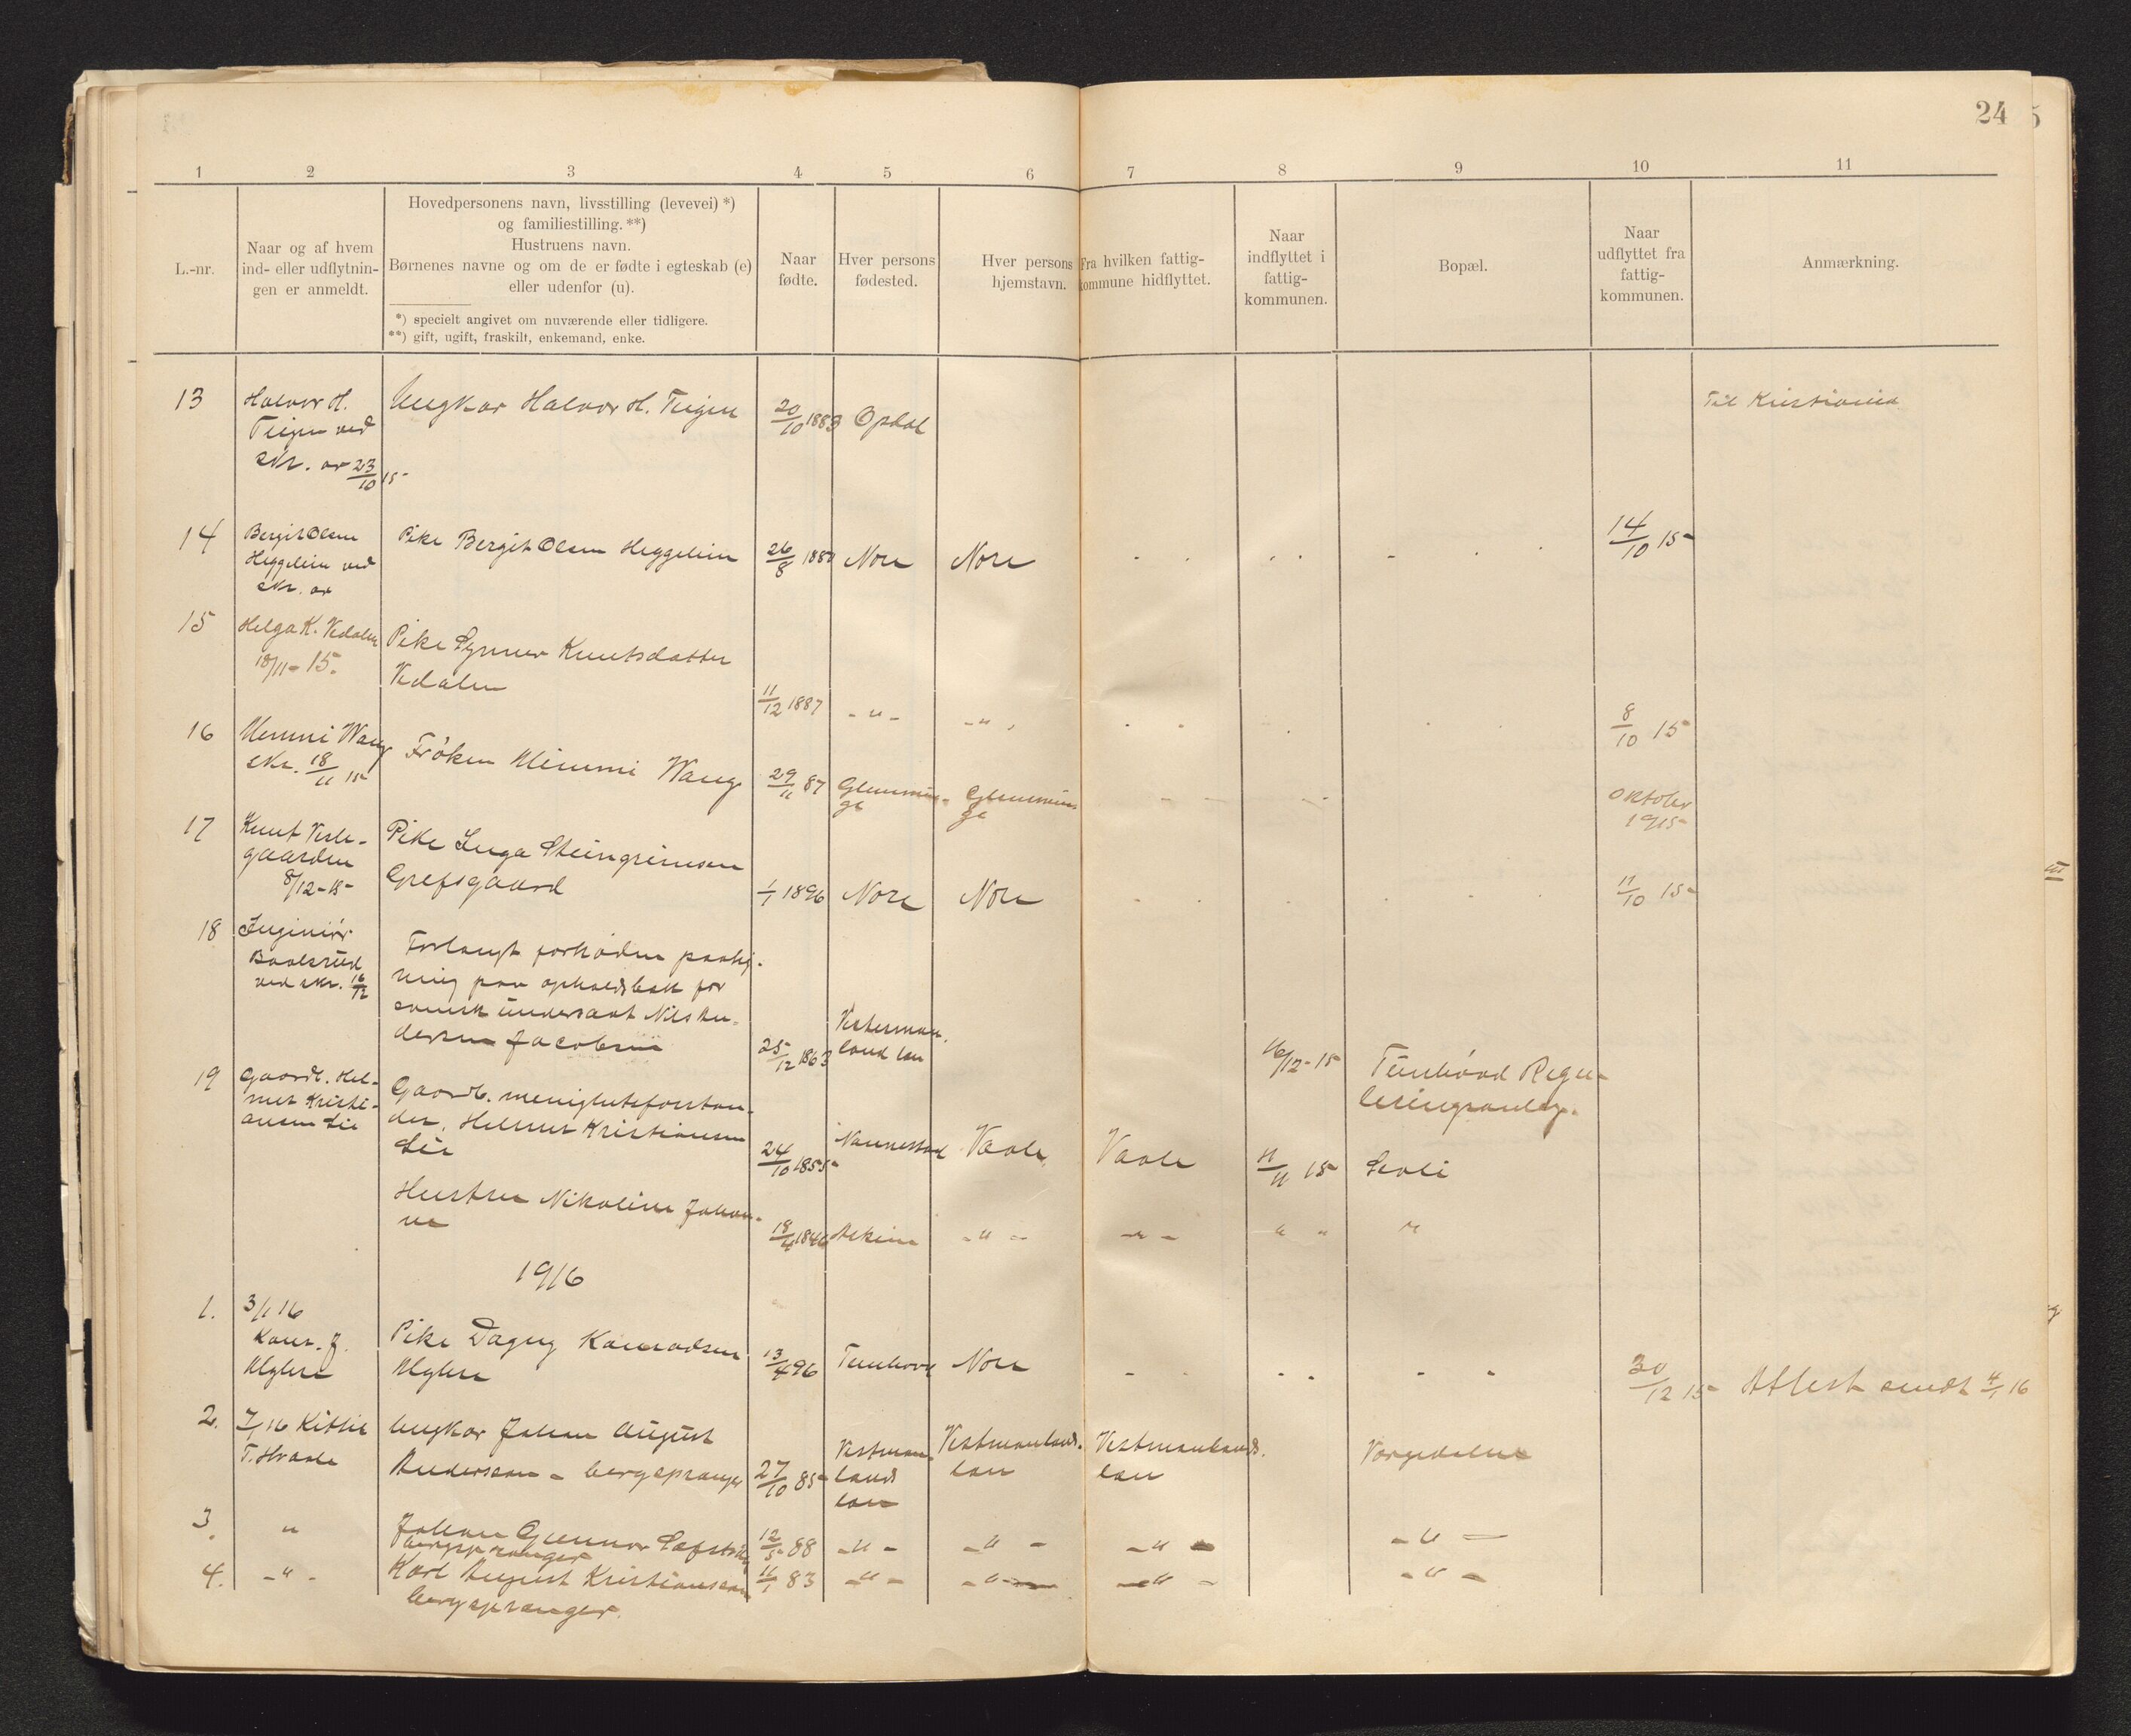 24
1 2 3 4 5 6 7 8 9 10 11
L.-nr.
Naar og af hvem
ind- eller udflytnin-
gen er anmeldt.
Hovedpersonens navn, livsstilling (levevei) *)
og familiestilling. **)
Hustruens navn.
Børnenes navne og om de er fødte i egteskab (e)
eller udenfor (u).
*) specielt angivet om nuværende eller tidligere.
**) gift, ugift, fraskilt, enkemand, enke.
Naar
fødte.
Hver persons
fødested.
Hver persons
hjemstavn.
Fra hvilken fattig-
kommune hidflyttet.
Naar
indflyttet i
fattig-
kommunen.
Bopæl.
Naar
udflyttet fra
fattig-
kommunen.
Anmærkning.
13
Halvor H.
Teigen ved
skr. av 23/10 15-
Ungkar Halvor H. Teigen
20/10 1883
Opdal
Til Kristiania
14
Bergit Olsen
Heggelien ved
skr. av
Pike Bergit Olsen Heggelien
26/8 1880
Nore
Nore
14/10 15-
15
Helga K. Vedalen
18/11-15.
Pike Synnev Knutsdatter
Vedalen
11/12 1887
-"-
-"-
8/10 15
16
Memmi Wang
skr. 18/11 15
Frøken Mimmi Wang
29/11 87
Glemmin-
ge
Glemmin-
ge
Oktober
1915-
17
Knut Vesle-
gaarden
8/12-15-
Pike Inga Steingrimsen
Grefsgaard
1/1 1896
Nore
Nore
11/10 15-
18
Ingeniør
Baalsrud
ved skr. 16/12
Forlangt forhåden paateg-
ning paa opholdsbok for
svensk undersaat Nils An-
dersen Jacobsen
25/12 1863
Vesterman-
land len
16/12-15
Tunhovd Regu-
leringsanlæg.
19
Gaardb. Hel-
mer Kristi-
ansen Lie
Gaardb. menighetsforstan-
der, Helmer Kristiansen
Lie
24/10 1855-
Nannestad
Vaale
Vaale
11/11 15
Hustru Nikoline Johan-
ne
18/4 1846
Askim
-"-
-"-
" "
"
1916
1.
3/1 16
Konr. J.
Pike Dagny Konradsen
13/4 96
Tunhovd
Nore
30/12 15-
Attest sendt 4/1 16
2.
7/1 16 Kittil
T. Hvaale
Ungkar Johan August
Anderssen - bergsprænger
27/10 85-
Vestman-
lands
len
Vestmanlands-
len
Vestmanlands-
len
3.
"
Johan Gunnar
bergsprænger
12/5 88
-"-
-"-
-"-
-"-
4.
-"-
Karl August Kristiansen
bergsprænger.
11/1 83
-"-
-"-
-"-
-"-